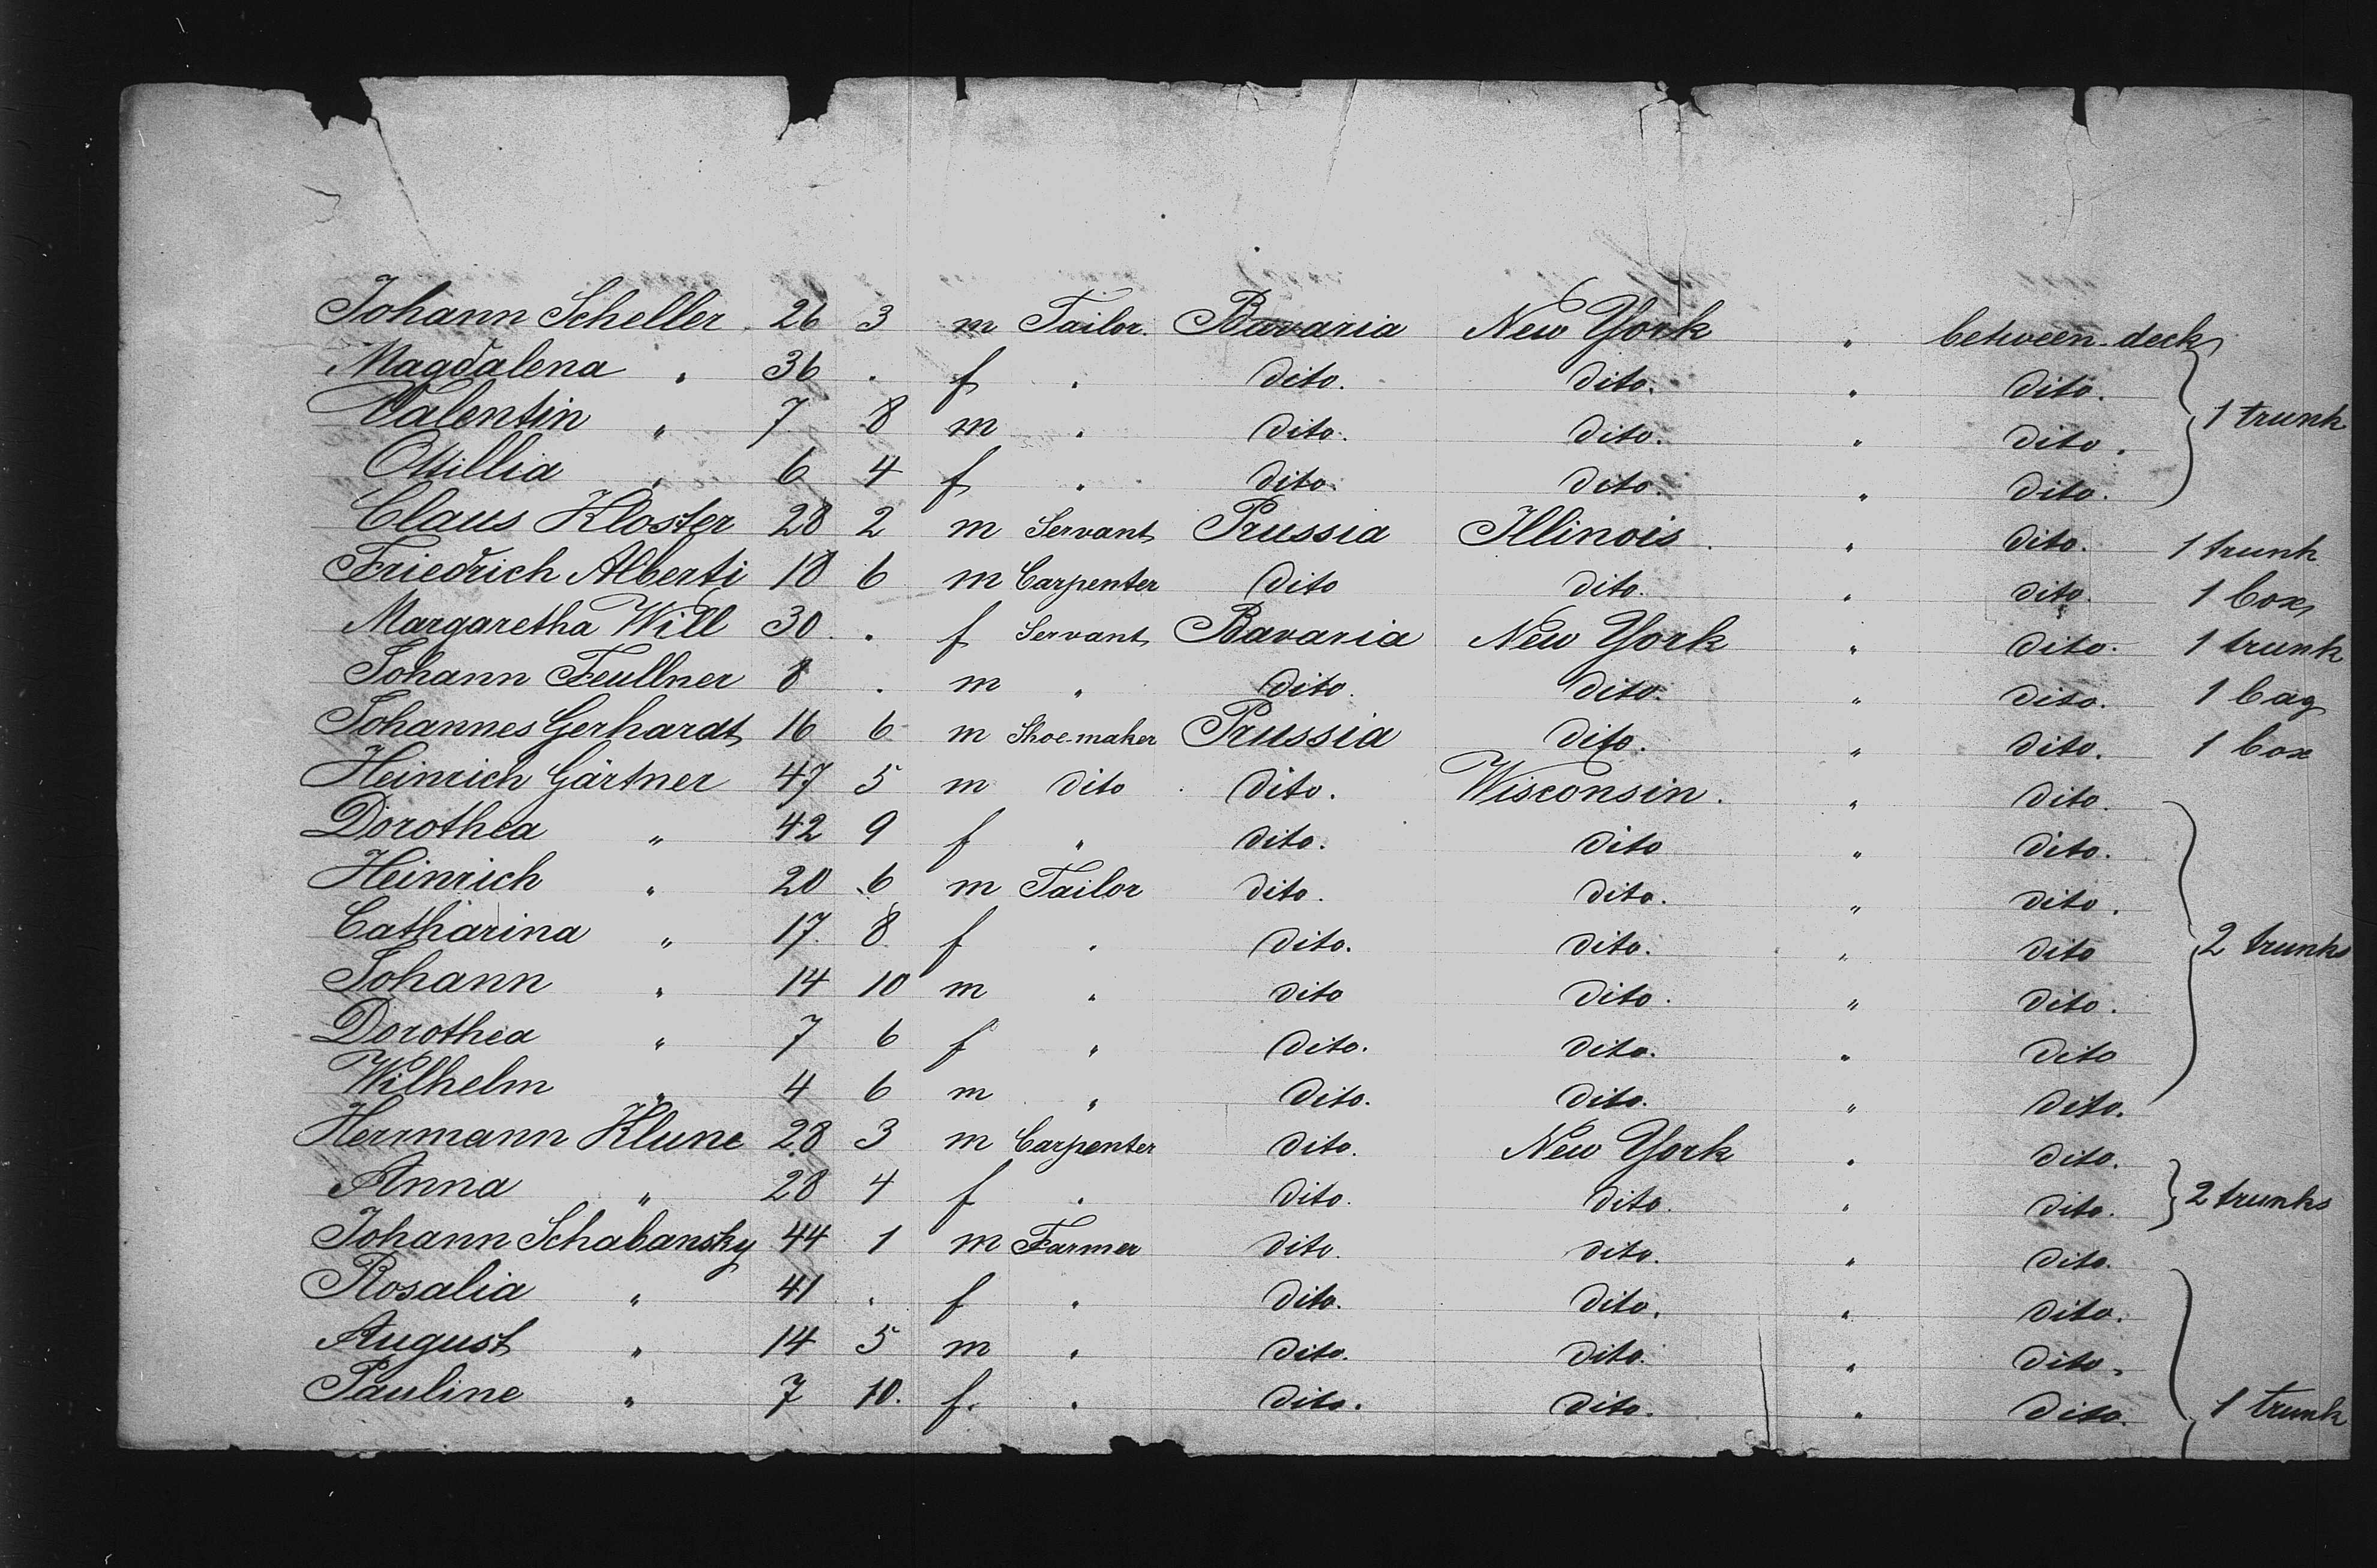 Johann Scheller. 26 3 m Tailor. Bavaria New York " between-deck
Magdalena " 36 . f " dito. dito. " dito.
Valentin " 7 8 m " dito. dito. " dito. 1 trunk
Ottillia " 6 4 f " dito. dito. " dito.
Claus Kloster 28 2 m Servant Prussia Illinois. " dito. 1 trunk
Friedrich Alberti 18 6 m Carpenter dito dito. " dito. 1 box
Margaretha Will 30 . f Servant Bavaria New York " dito. 1 trunk
Johann Feullner 8 . m " dito. dito. " dito. 1 bag
Johannes Gerhardt 16 6 m Shoe-maker Prussia dito. " dito. 1 box
Heinrich Gärtner 47 5 m dito dito. Wisconsin. " dito.
Dorothea " 42 9 f " dito. dito " dito.
Heinrich " 20 6 m Tailor dito. dito. " dito.
Catharina " 17. 8 f " dito. dito. " dito 2 trunks
Johann " 14 10 m " dito dito. " dito.
Dorothea " 7 6 f " dito. dito. " dito
Wilhelm " 4 6 m " dito. dito. " dito.
Herrmann Klune 28 3 m Carpenter dito. New York " dito.
Anna " 28 4 f " dito. dito. " dito. 2 trunks
Johann Schabansky 44 1 m Farmer dito. dito. " dito.
Rosalia " 41 . f " dito. dito. " dito.
August " 14 5 m " dito. dito. " dito.
Pauline " 7 10. f. " dito. dito. " dito. 1 trunk